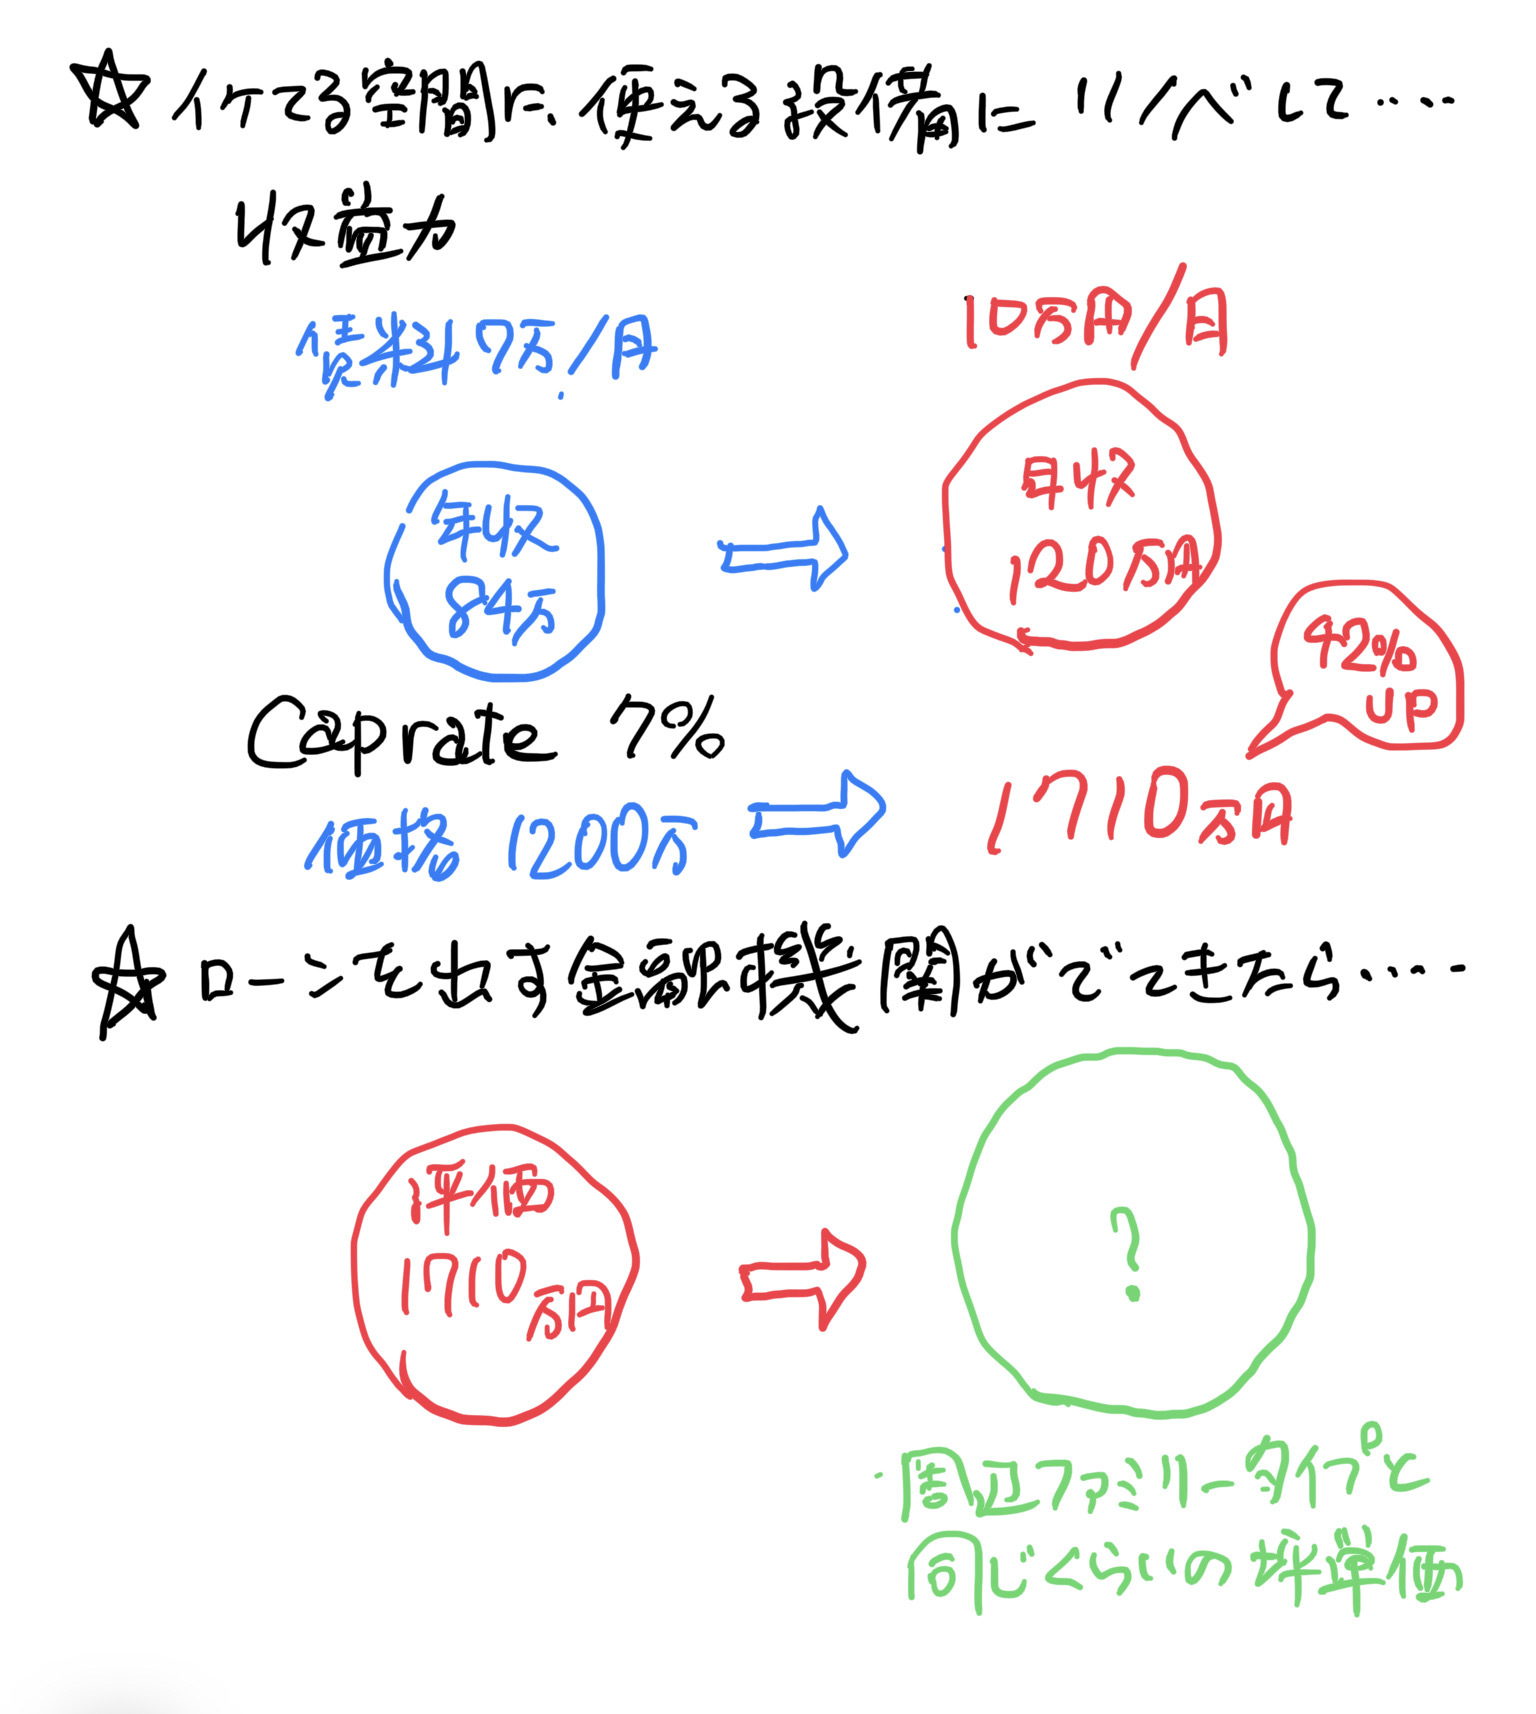 ☆イケてる空間に、使える設備にリノベして‥‥
収益力
賃料7万/月
10万円/月
年収
84万
年収
120万円
42%
UP
Caprate 7%
価格 1200万
1710万円
☆ローンを出す金融機関がでてきたら‥‥
評価
1710万円
?
周辺ファミリータイプと
同じくらいの坪単価